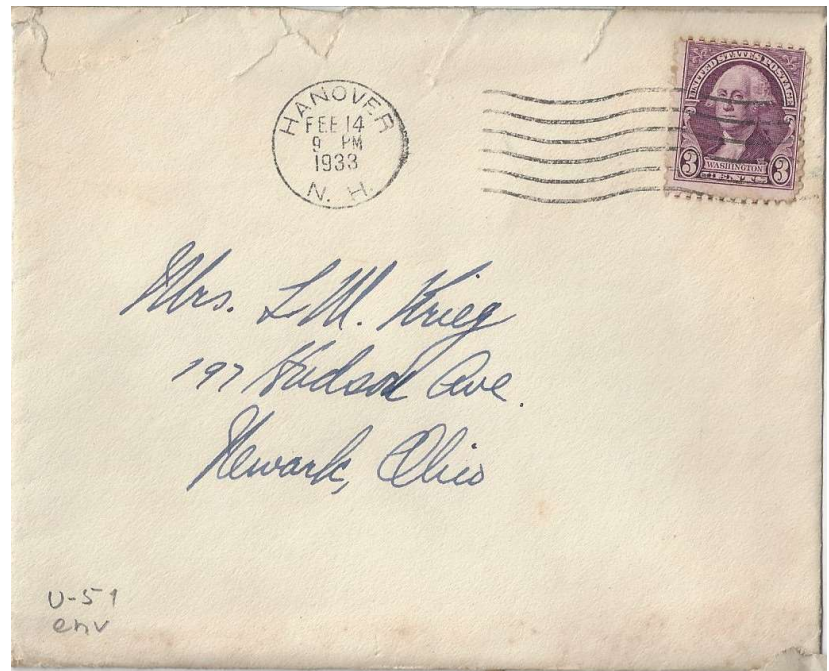 HANOVER
FEB 14
9 PM
1933
N. H.
UNITED STATES POSTAGE
3 WASHINGTON 3
CENTS
Mrs. L M. Krieg
197 Hudson Ave.
Newark, Ohio
U-51
env